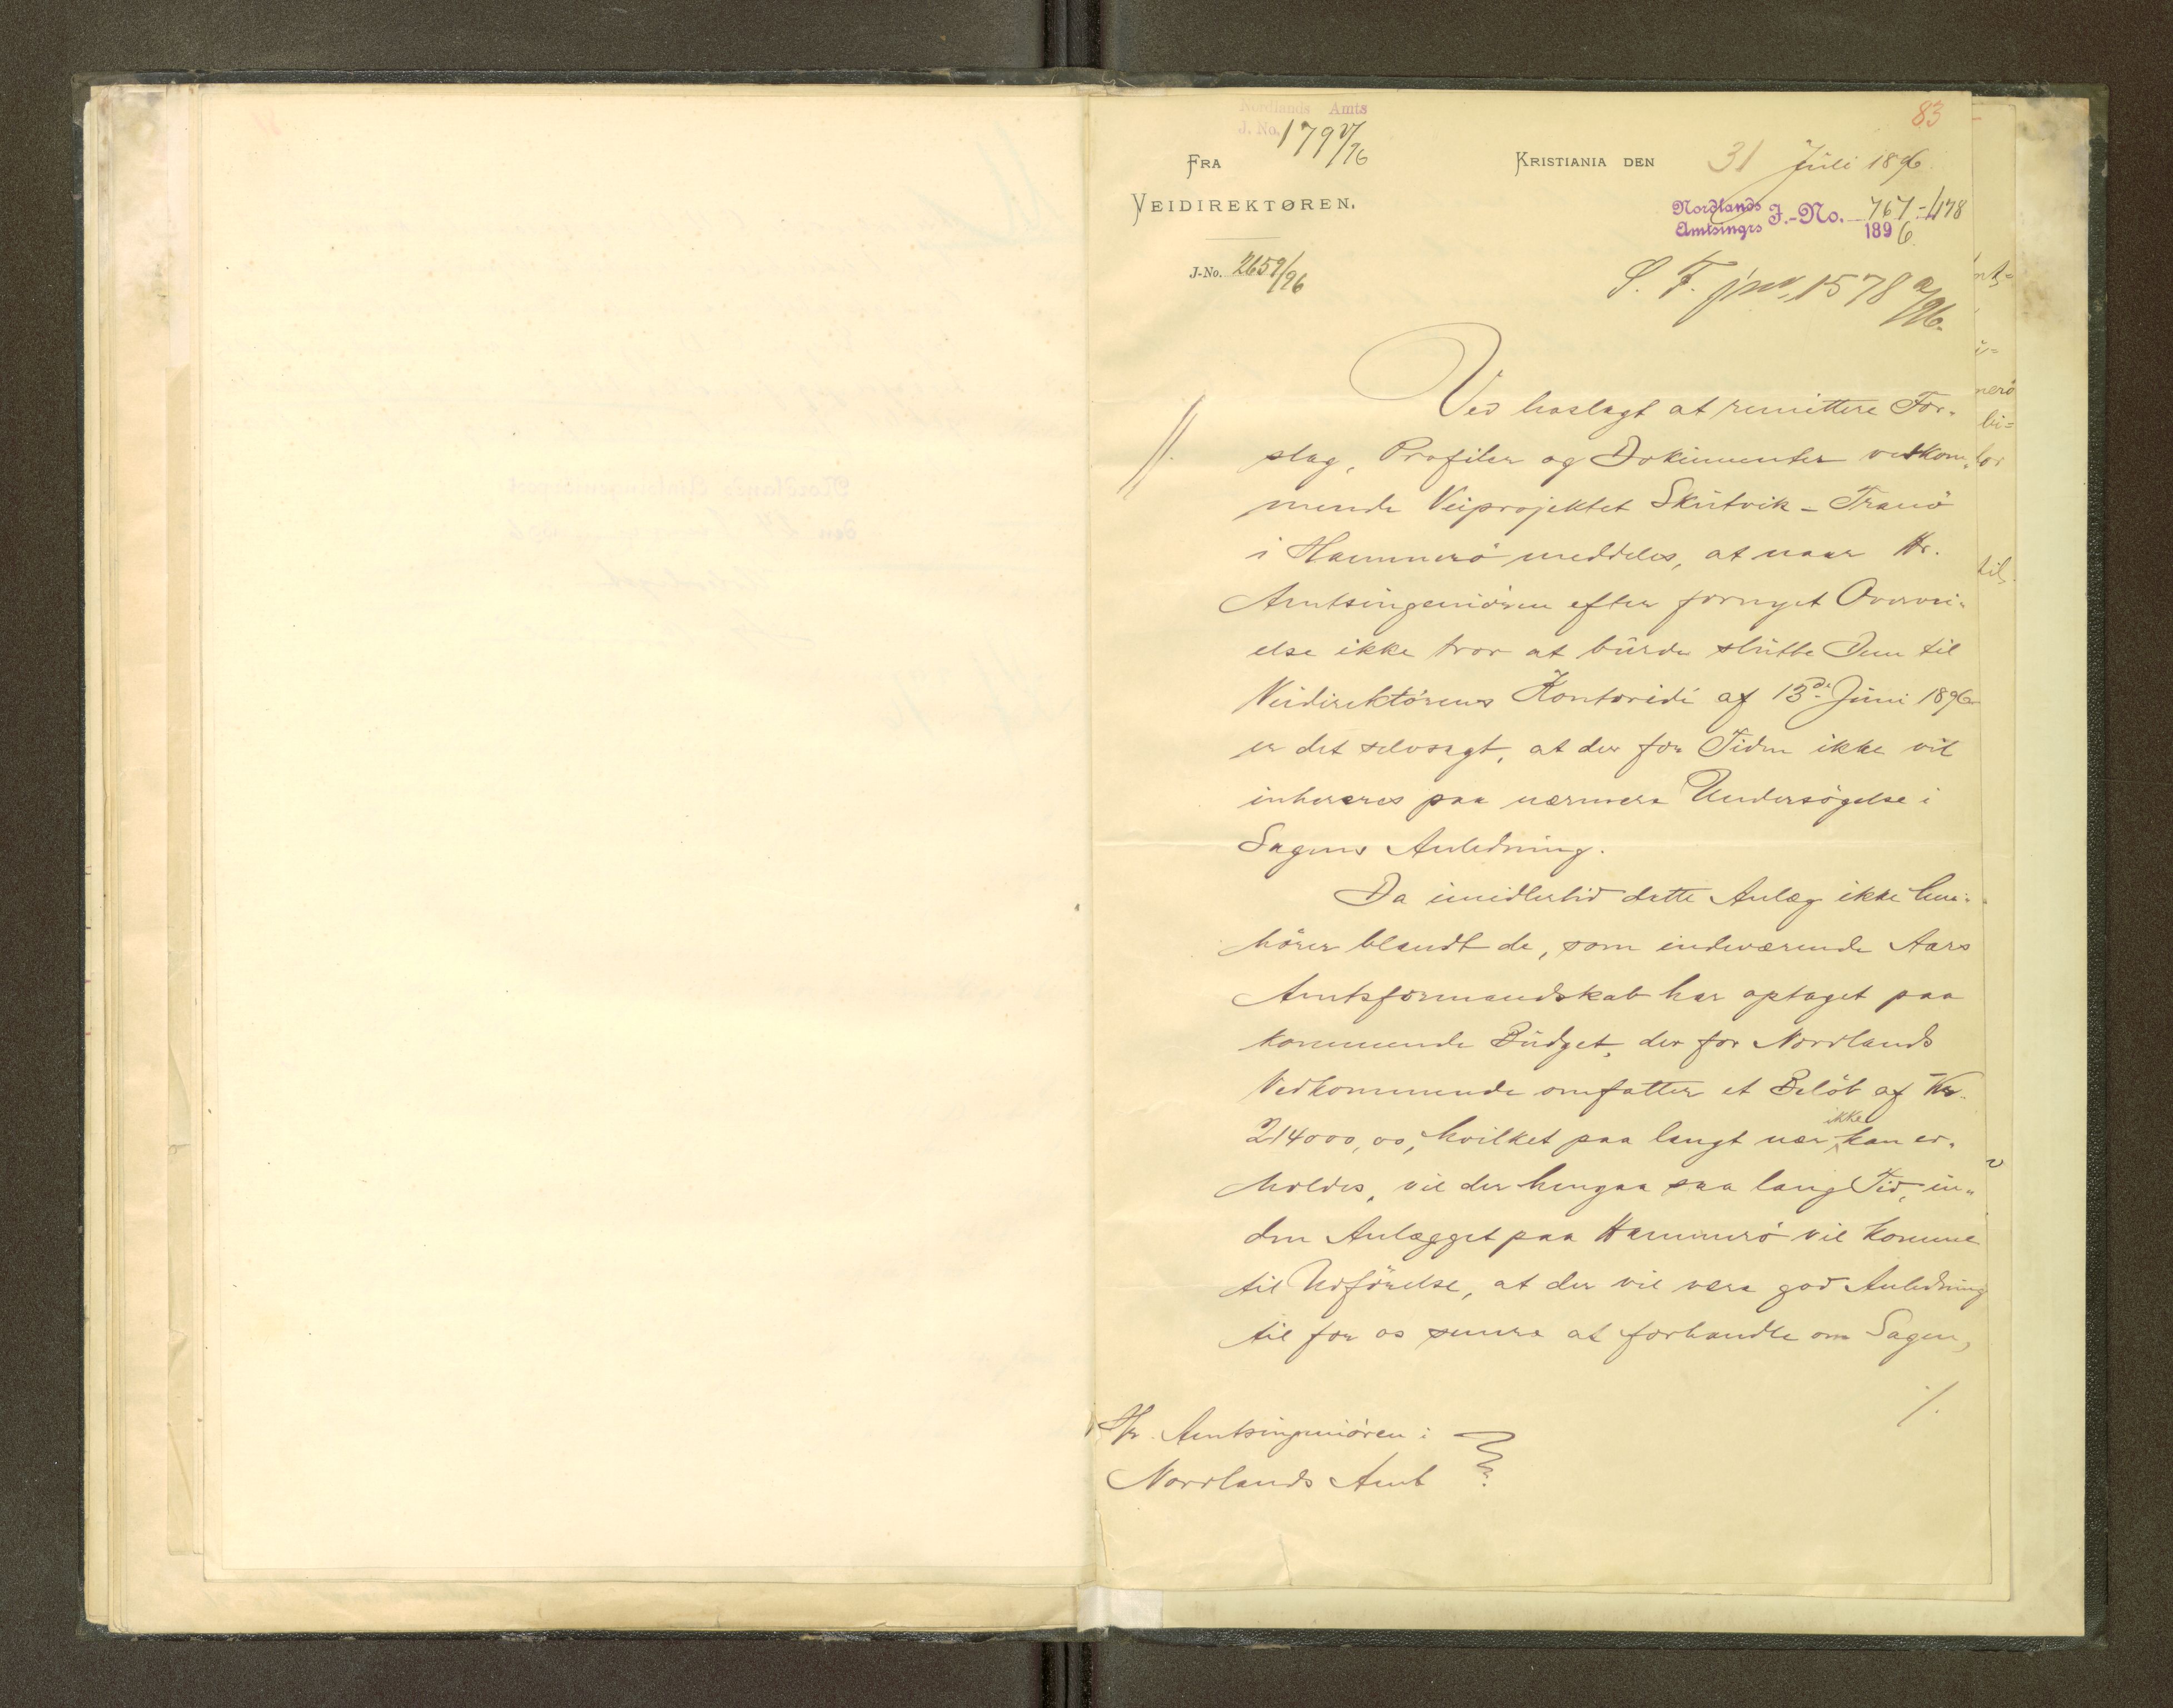 Nordlands Amts
J. No. 1797/96
83
FRA
VEIDIREKTØREN.
KRISTIANIA DEN 31 Juli 1896.
Nordlands Amtsingrs J.-No. 767-478 1896
J-No. 2659/96
S. F. jnr. 1578 a/96.
Ved hoslagt at remittere For-
slag, Profiler og Dokumenter vedkom-
mende Veiprojektet Skutvik - Tranö
i Hammerö meddeles, at naar Hr.
Amtsingeniören efter fornyet Overvei-
else ikke tror at burde slutte Dem til
Veidirektörens Kontoridé af 13de Juni 1896
er det selvsagt, at der for Tiden ikke vil
inhereres paa nærmere Undersögelse i
Sagens Anledning.
Da imidlertid dette Anlæg ikke hen-
hörer blandt de, som indeværende Aars
Amtsformandskab har optaget paa
kommende Budget, der for Nordlands
Vedkommende omfatter et Belöb af Kr.
214000,00, hvilket paa langt nær ikke kan er-
holdes, vil der hengaa saa lang Tid, in-
den Anlægget paa Hammerö vil komme
til Udförelse, at der vil være god Anledning
til for os senere at forhandle om Sagen,
./.
Hr. Amtsingeniören i
Nordlands Amt